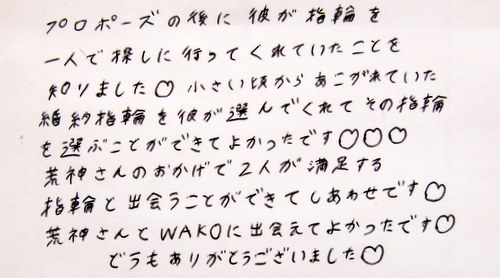 プロポーズの後に彼が指輪を
一人で探しに行ってくれていたことを
知りました♡ 小さい頃からあこがれていた
婚約指輪を彼が選んでくれてその指輪
を選ぶことができてよかったです♡♡♡
荒神さんのおかげで2人が満足する
指輪と出会うことができてしあわせです♡
荒神さんとWAKOに出会えてよかったです♡
どうもありがとうございました♡